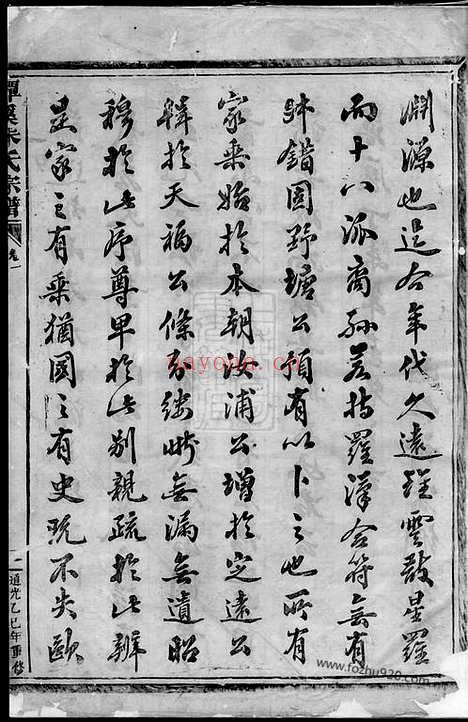 淵源也迄今年代久遠雖雲散星羅
而十八派裔孫若指羅漢合符無有
舛錯固野塘公預有以卜之也所有
家乘始於本朝澂浦公增於定遠公
輯於天福公條分縷晰無漏無遺昭
穆於此序尊卑於此別親疏於此辨
是家之有乘猶國之有史既不失歐
朱氏宗譜
道光乙巳年重修
nayona.cn
www.fozhu920.com